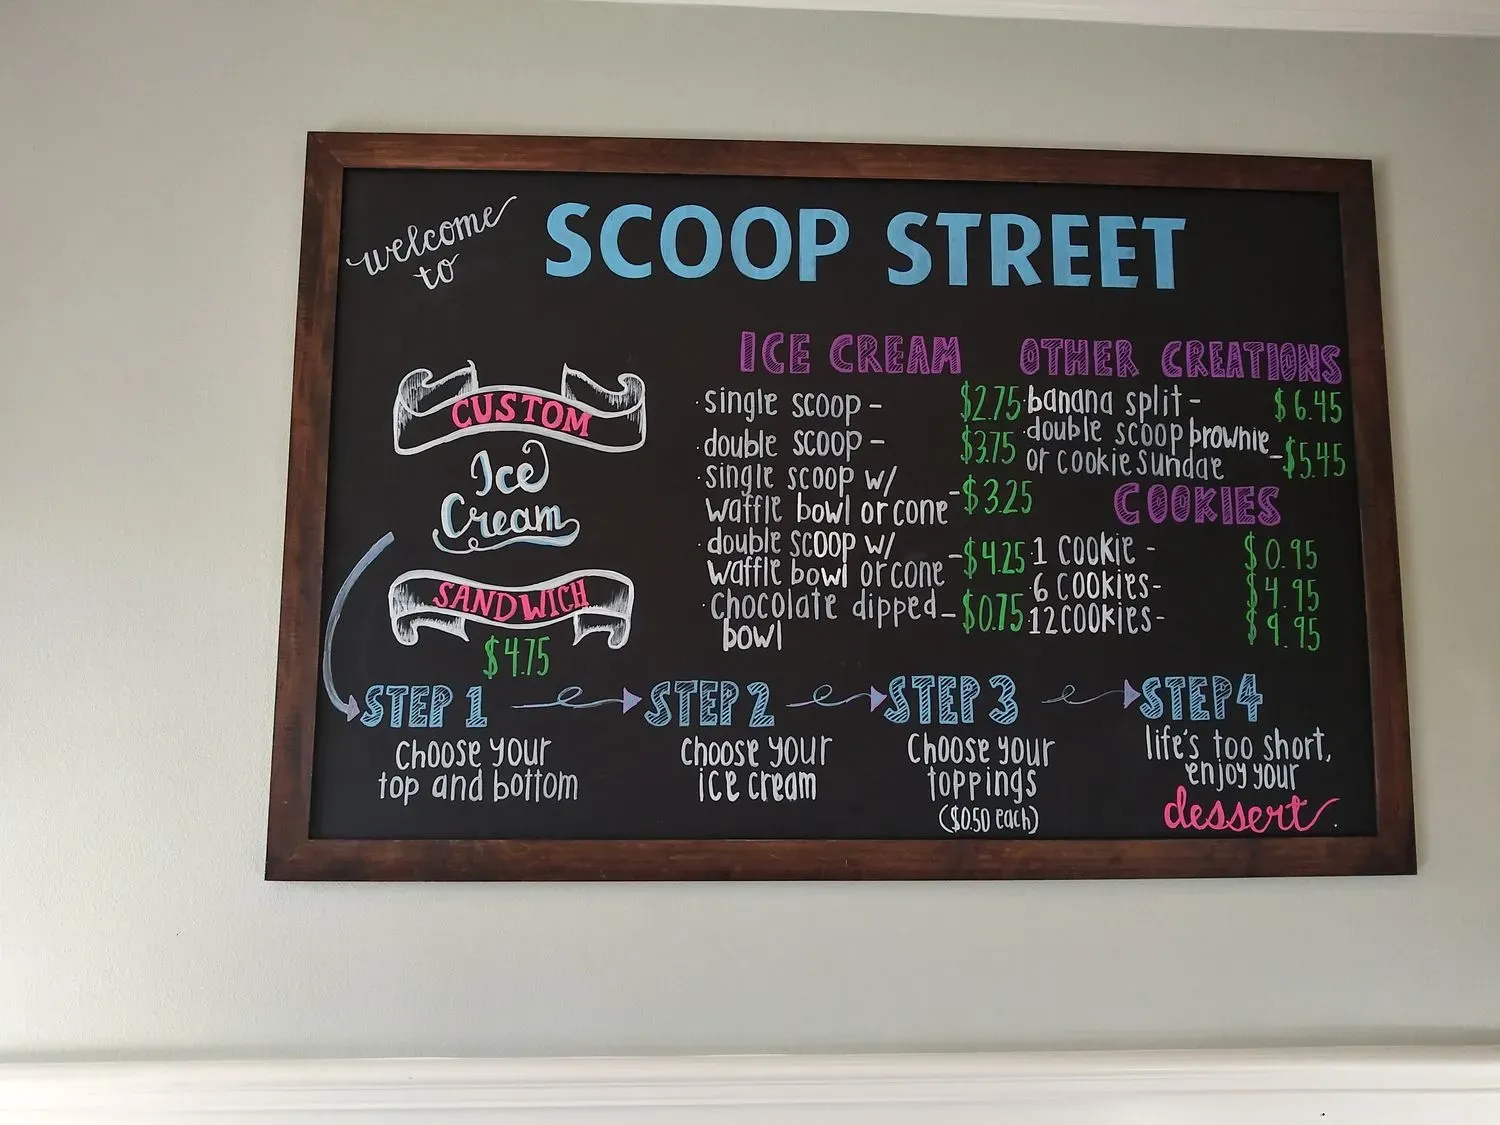 welcome
to
SCOOP STREET
CUSTOM
Ice
Cream
SANDWICH
$4.75
ICE CREAM
· single scoop - $2.75
· double scoop - $3.75
· single scoop w/
waffle bowl or cone - $3.25
· double scoop w/
waffle bowl or cone - $4.25
· chocolate dipped - $0.75
bowl
OTHER CREATIONS
· banana split - $6.45
· double scoop brownie
or cookie sundae - $5.45
COOKIES
· 1 cookie - $0.95
· 6 cookies - $4.95
· 12 cookies - $9.95
STEP 1
choose your
top and bottom
STEP 2
choose your
ice cream
STEP 3
choose your
toppings
($0.50 each)
STEP 4
life's too short,
enjoy your
dessert.